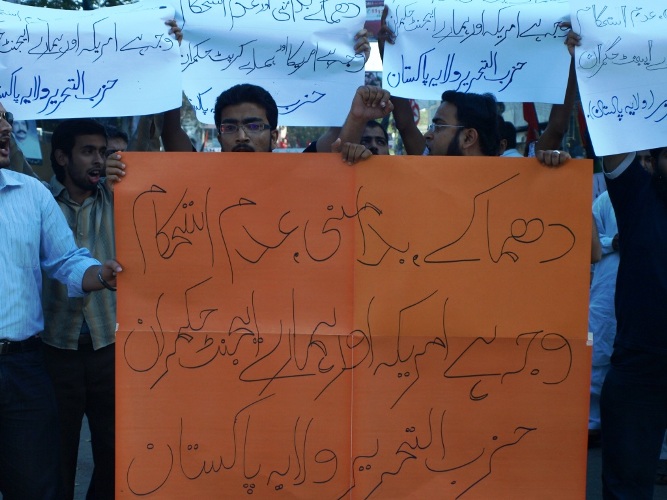 دھماکے بدامنی اور عدم استحکام
وجہ ہے امریکا اور ہمارے کرپٹ حکمران
حزب التحریر ولایہ پاکستان
وجہ ہے امریکہ اور ہمارے ایجنٹ حکمران
حزب التحریر ولایہ پاکستان
وجہ ہے امریکہ اور ہمارے ایجنٹ
حزب التحریر ولایہ پاکستان
عدم استحکام
ایجنٹ حکمران
ولایہ پاکستان
دھماکے، بدامنی، عدم استحکام
وجہ ہے امریکہ اور ہمارے ایجنٹ حکمران
حزب التحریر ولایہ پاکستان